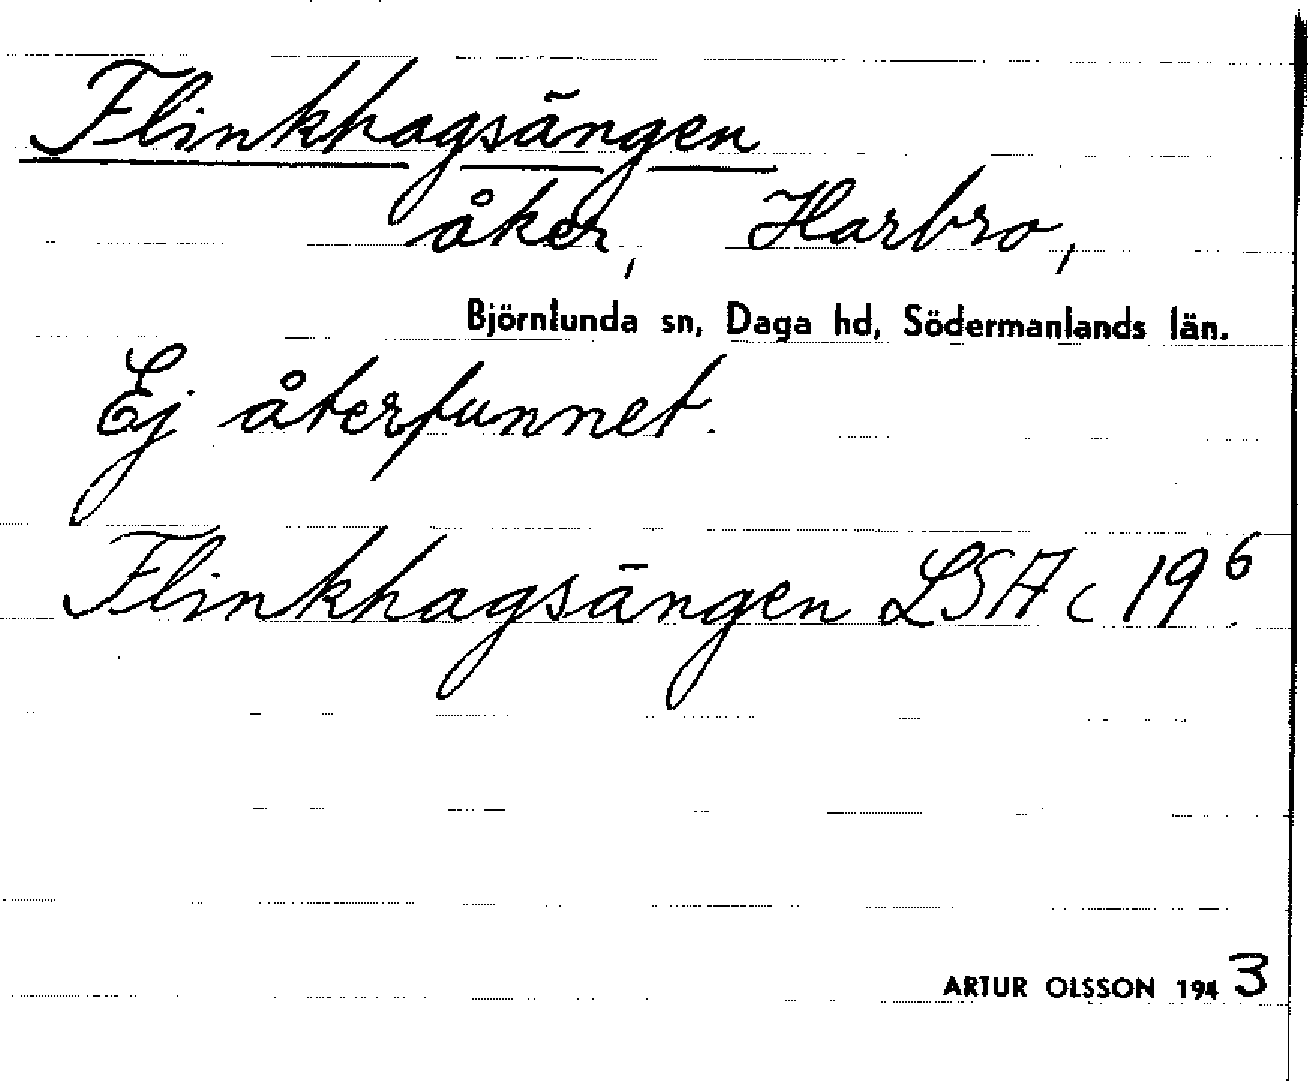 Flinkhagsängen
åker, Harbro,
Björnlunda sn, Daga hd, Södermanlands län.
Ej återfunnet.
Flinkhagsängen LSA c 19⁶.
ARTUR OLSSON 1943